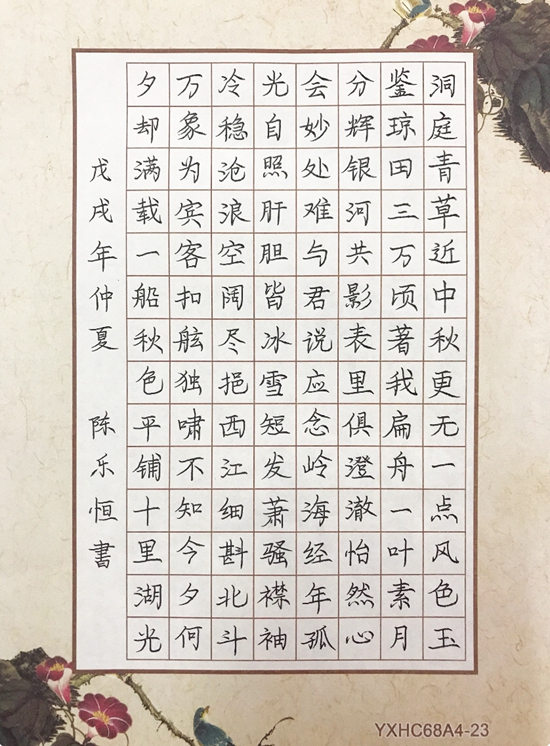 洞庭青草近中秋更无一点风色玉
鉴琼田三万顷著我扁舟一叶素月
分辉银河共影表里俱澄澈怡然心
会妙处难与君说应念岭海经年孤
光自照肝胆皆冰雪短发萧骚襟袖
冷稳沧浪空阔尽挹西江细斟北斗
万象为宾客扣舷独啸不知今夕何
夕却满载一船秋色平铺十里湖光
戊戌年仲夏 陈乐恒書
YXHC68A4-23